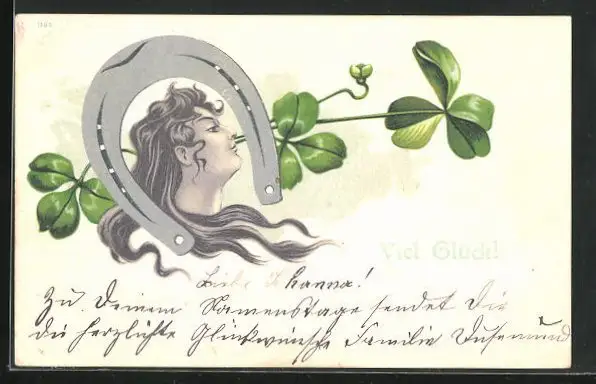 Viel Glück!
Liebe Johanna!
Zu Deinem Namenstage sendet Dir
die herzlichste Glückwünsche Familie